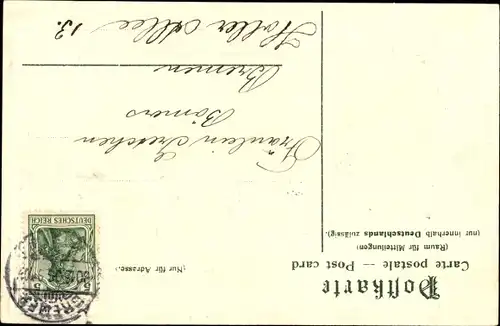 Postkarte
Carte postale — Post card
(Raum für Mitteilungen)
(nur innerhalb Deutschlands zulässig).
(Nur für Adresse).
DEUTSCHES REICH
5 5
BREMEN
Fräulein Gretchen
Bömers
Bremen
Holler Allee
13.